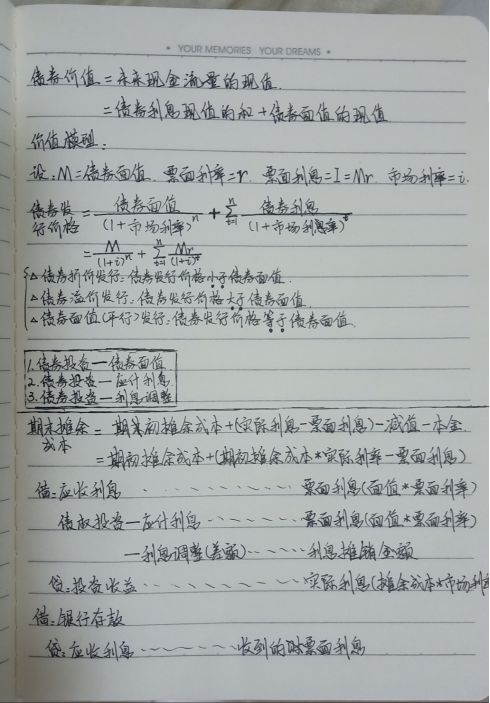 YOUR MEMORIES YOUR DREAMS
债券价值=未来现金流量的现值.
=债券利息现值的和+债券面值的现值
价值模型:
设:M=债券面值. 票面利率=r. 票面利息=I=Mr. 市场利率=i.
债券发行价格=债券面值/(1+市场利率)^n+∑_{t=1}^n 债券利息/(1+市场利息率)^t
=M/(1+i)^n+∑_{t=1}^n Mr/(1+i)^t
△债券折价发行:债券发行价格小于债券面值.
△债券溢价发行:债券发行价格大于债券面值.
△债券面值(平行)发行:债券发行价格等于债券面值.
1.债券投资—债券面值
2.债券投资—应计利息
3.债券投资—利息调整
期末摊余成本=期末初摊余成本+(实际利息-票面利息)-减值-本金.
=期初摊余成本+(期初摊余成本*实际利率-票面利息)
借:应收利息 票面利息(面值*票面利率)
债权投资—应计利息 票面利息(面值*票面利率)
—利息调整(差额) 利息摊销金额
贷:投资收益 实际利息(摊余成本*市场利率
借:银行存款
贷:应收利息 收到的时票面利息